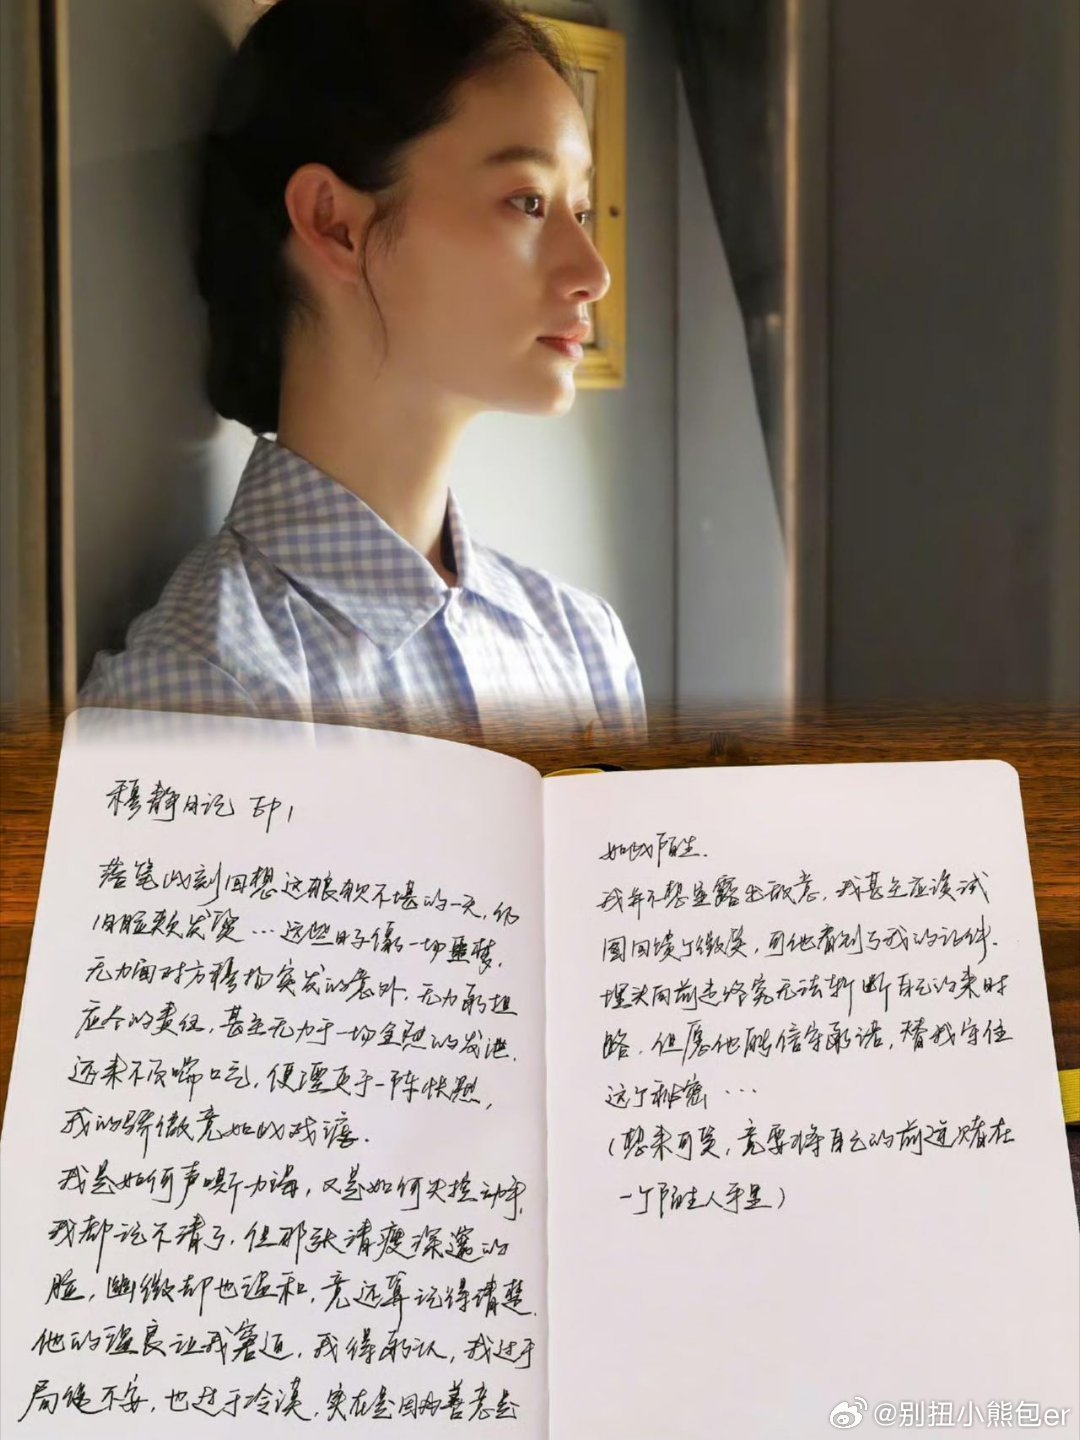 穆静日记 EP1
落笔此刻回想这狼狈不堪的一天,仍
旧脸颊发烫...这些日子像一场噩梦,
无力面对方穆扬突发的意外,无力承担
应今的责任,甚至无力于一场全怒的发泄.
还来不及喘口气,便湮灭于一阵快怒,
我的骄傲竟如此戏谑.
我是如何声嘶力竭,又是如何失控动手,
我都记不清了.但那张清瘦深邃的
脸,幽微却也温和,竟还算记得清楚.
他的温良让我窘迫,我得承认,我过于
局促不安,也过于冷漠,实在是因为善意是
如此陌生.
我并不想显露出敌意,我甚至应该试
图回馈个微笑,可他看到了我的证件.
埋头向前走终究无法斩断自己的来时
路,但愿他能信守承诺,替我守住
这个秘密...
(想来可笑,竟要将自己的前途赌在
一个陌生人手里)
@别扭小熊包er